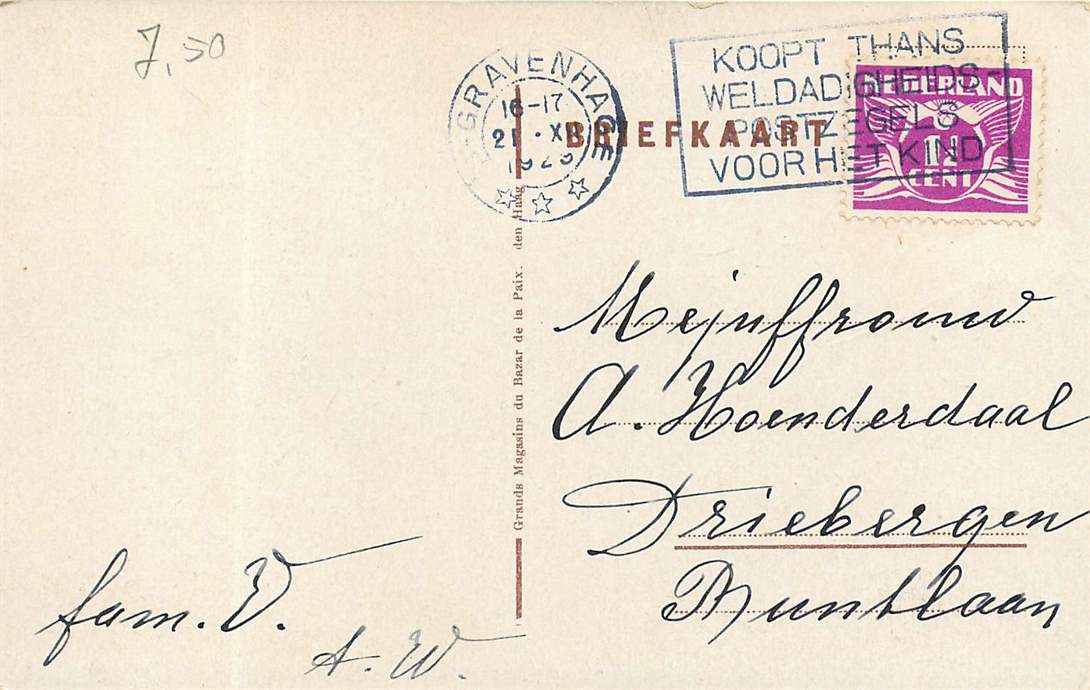 7,50
'S-GRAVENHAGE
16-17
21 · XII
192
KOOPT THANS
WELDADIGHEIDS-
POSTZEGELS
VOOR HET KIND
NEDERLAND
1½
CENT
BRIEFKAART
Grands Magasins du Bazar de la Paix. den Haag
Mejuffrouw
A. Hoenderdaal
Driebergen
Buntlaan
fam. V.
A. W.